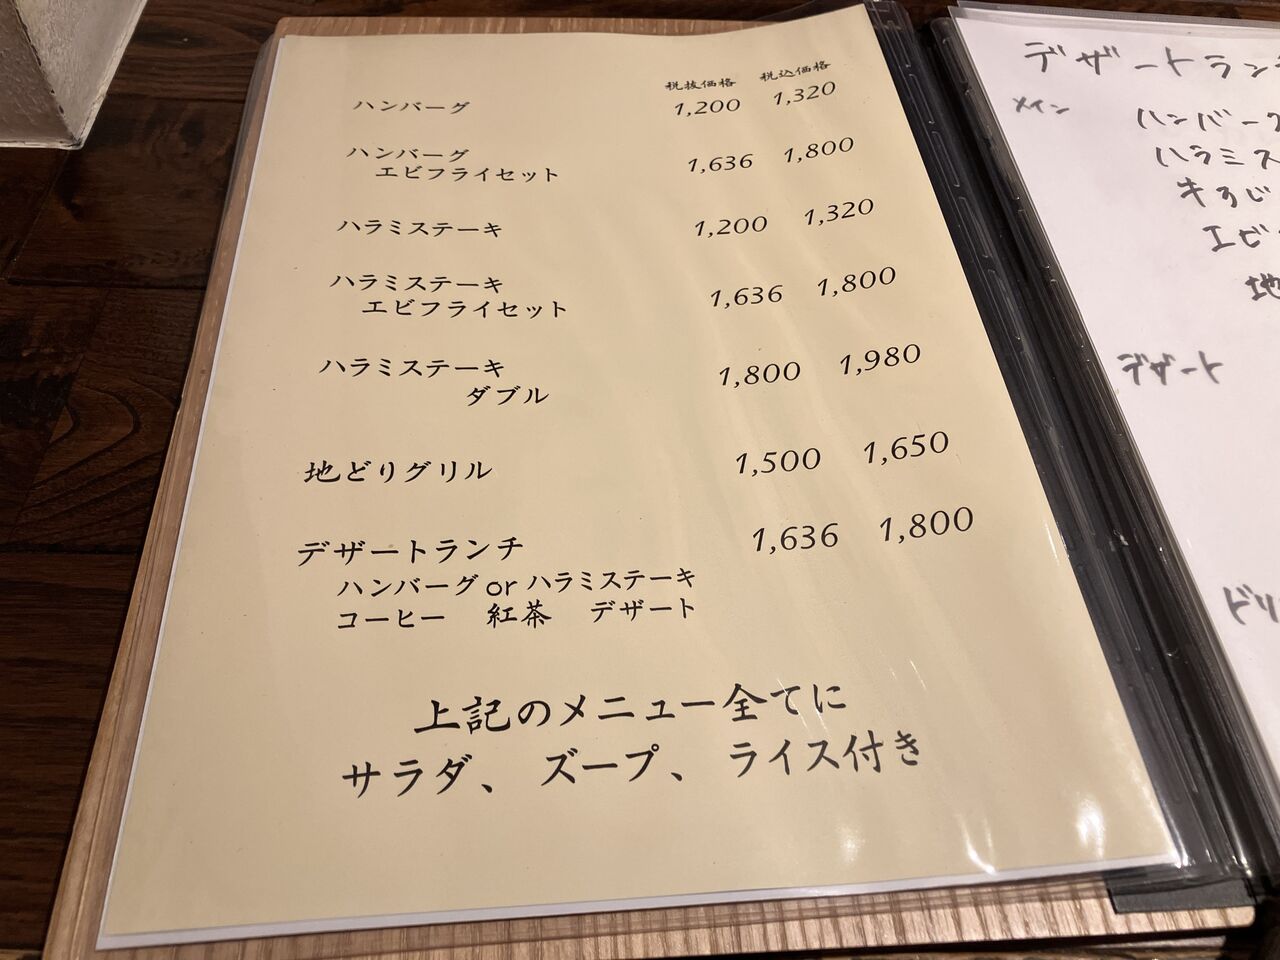 税抜価格 税込価格
ハンバーグ 1,200 1,320
ハンバーグ
エビフライセット 1,636 1,800
ハラミステーキ 1,200 1,320
ハラミステーキ
エビフライセット 1,636 1,800
ハラミステーキ
ダブル 1,800 1,980
地どりグリル 1,500 1,650
デザートランチ 1,636 1,800
ハンバーグ or ハラミステーキ
コーヒー 紅茶 デザート
上記のメニュー全てに
サラダ、ズープ、ライス付き
デザートラン
メイン
ハンバーグ
ハラミス
牛すじ
エビ
地
デザート
ドリ